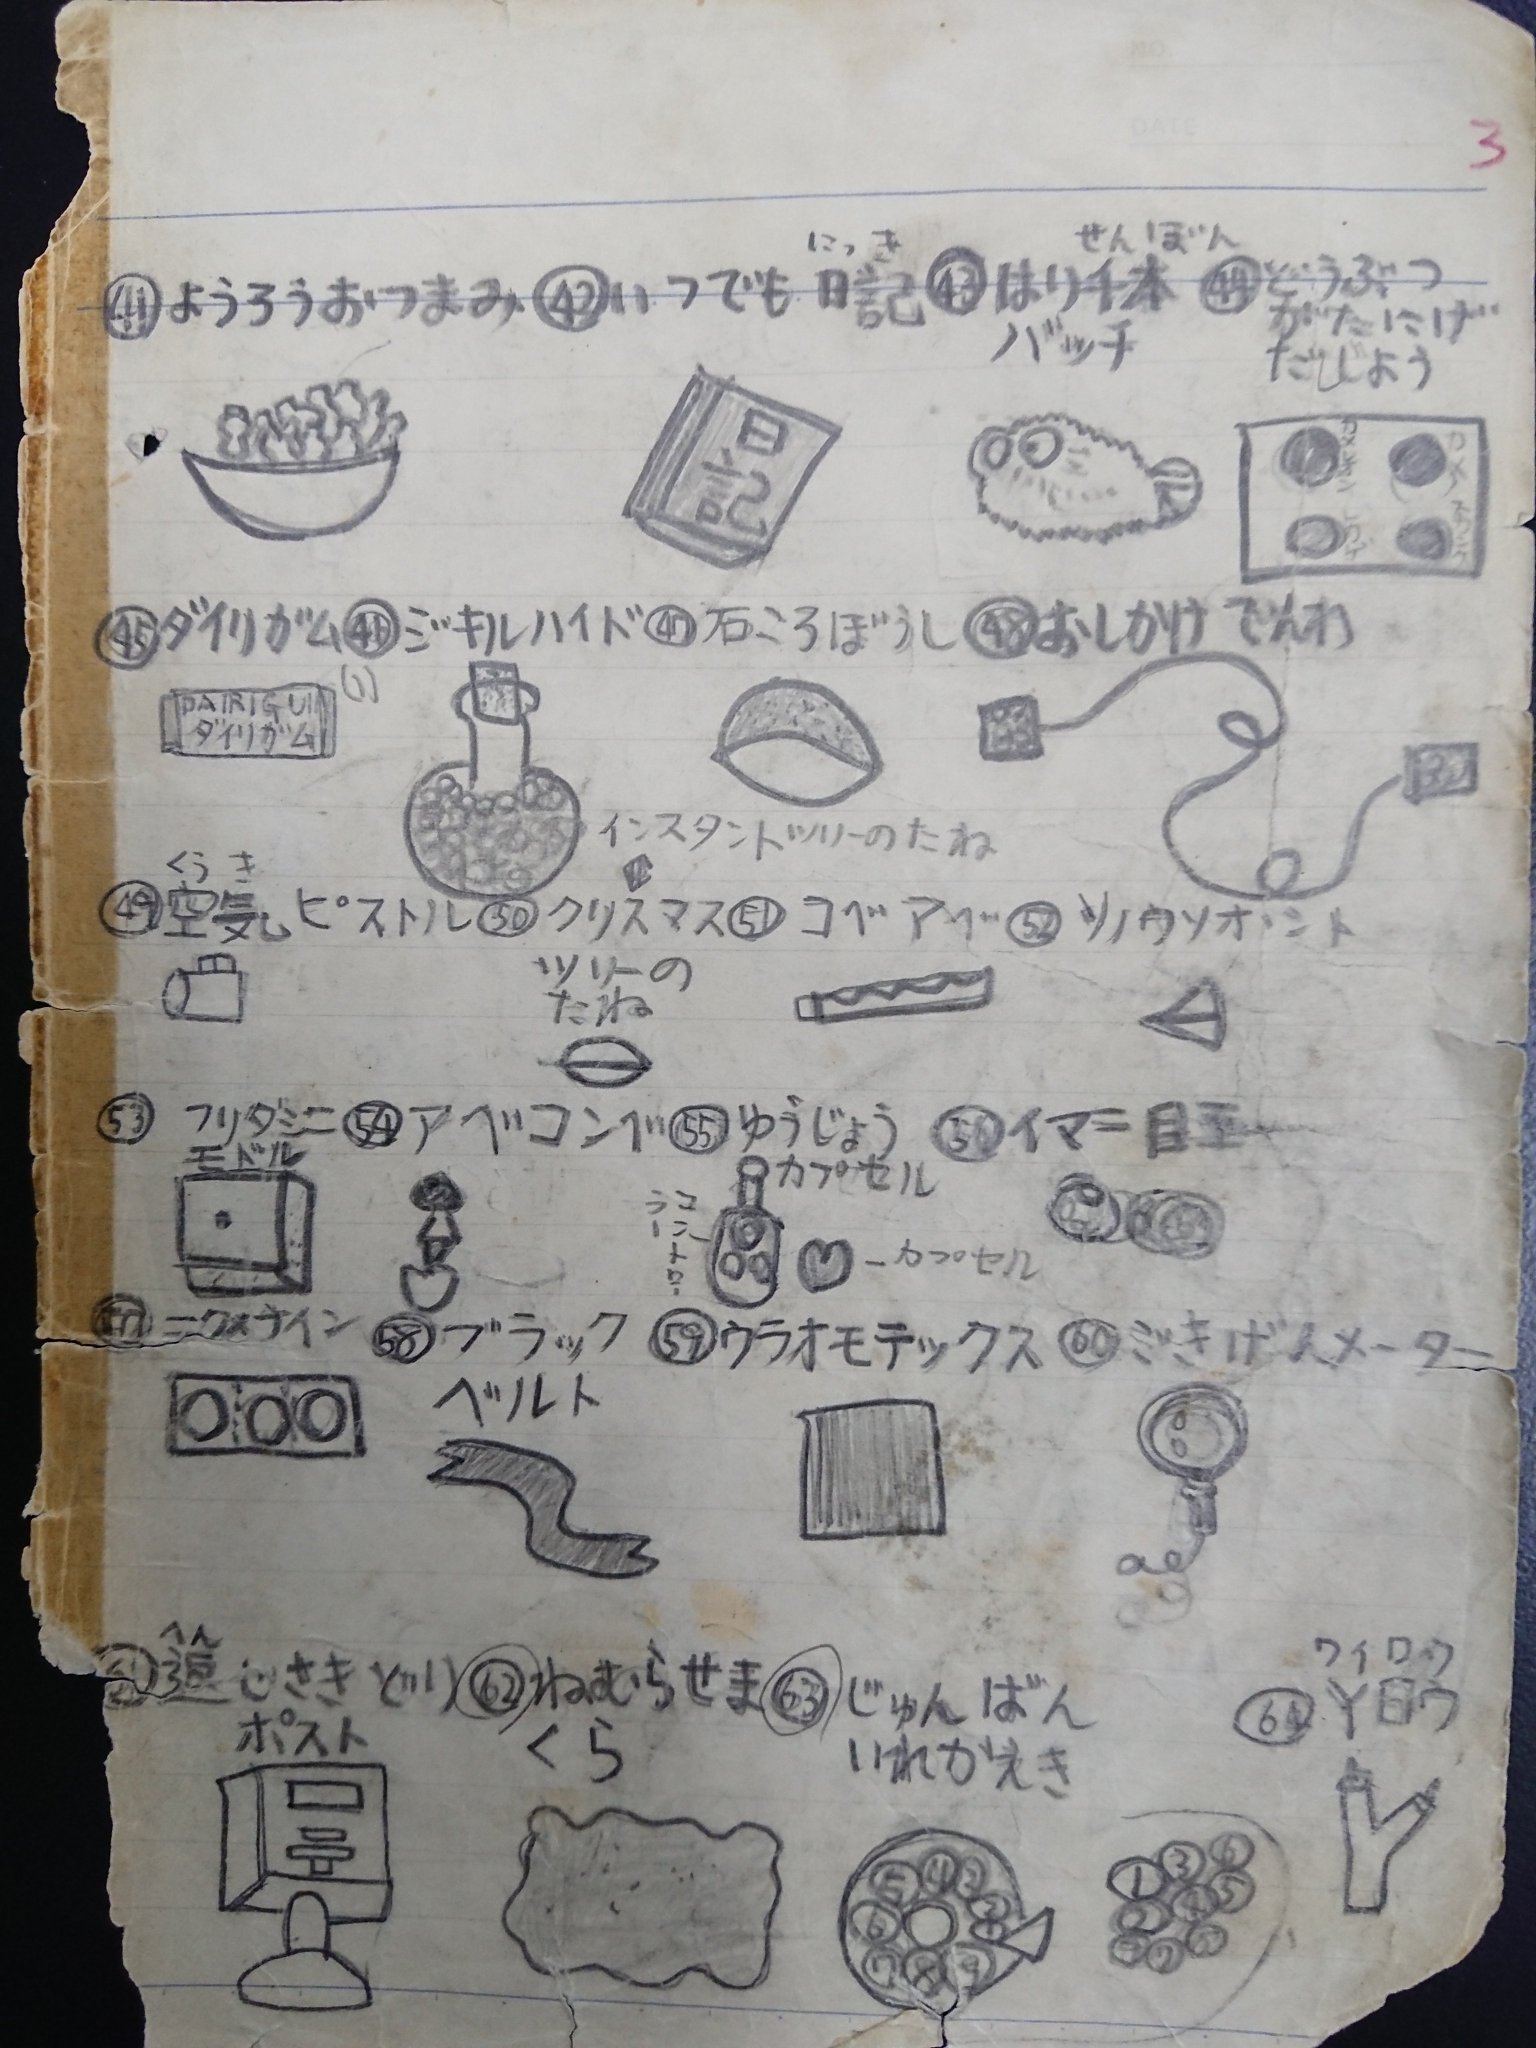 NO.
DATE
3
にっき せんぼん
㊶ようろうおつまみ ㊷いつでも日記 ㊸はり千本 ㊹どうぶつ
バッチ がたにげ
だじょう
日記
カメ
㊺ダイリガム ㊻ジキルハイド ㊼石ころぼうし ㊽おしかけでんわ
(1)
DAIRIGU
ダイリガム
インスタントツリーのたね
くうき
㊾空気ピストル ㊿クリスマス 51 コベアベ 52 ツノウソオント
ツリーの
たね
53 フリダシニ 54 アベコンベ 55 ゆうじょう 56 イマニ目玉
モドル カプセル
コントローラー
カプセル
ニクメナイン 58 ブラック 59 ウラオモテックス 60 ごきげんメーター
ベルト
へん
61 返じさきどり 62 ねむらせま 63 じゅんばん
ポスト くら いれかえき
ワイロウ
64 Y日ウ
〒
5 4 3
6 2
7 8 9 1
1 3 6
2 4 5